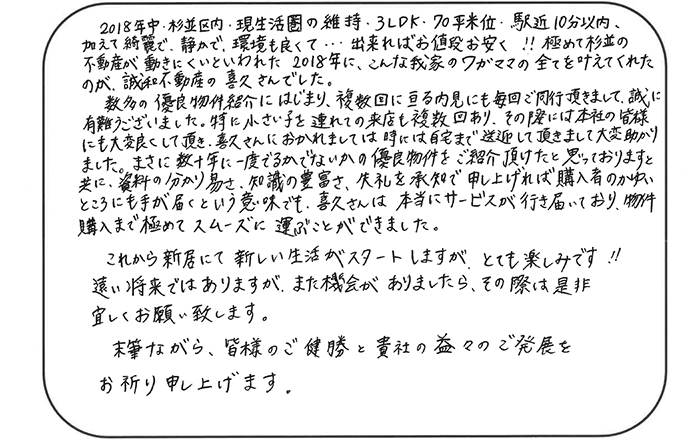 2018年中・杉並区内・現生活圏の維持・3LDK・70平米位・駅近10分以内、
加えて綺麗で、静かで、環境も良くて…出来ればお値段お安く!!極めて杉並の
不動産が動きにくいといわれた2018年に、こんな我家のワガママの全てを叶えてくれた
のが、誠和不動産の喜久さんでした。
数多の優良物件紹介にはじまり、複数回に亘る内見にも毎回ご同行頂きまして、誠に
有難うございました。特に小さい子を連れての来店も複数回あり、その際には本社の皆様
にも大変良くして頂き、喜久さんにおかれましては時には自宅まで送迎して頂きまして大変助かり
ました。まさに数十年に一度でるかでないかの優良物件をご紹介頂けたと思っておりますと
共に、資料の分かり易さ、知識の豊富さ、失礼を承知で申し上げれば購入者のかゆい
ところにも手が届くという意味でも、喜久さんは本当にサービスが行き届いており、物件
購入まで極めてスムーズに運ぶことができました。
これから新居にて新しい生活がスタートしますが、とても楽しみです!!
遠い将来ではありますが、また機会がありましたら、その際は是非
宜しくお願い致します。
末筆ながら、皆様のご健勝と貴社の益々のご発展を
お祈り申し上げます。